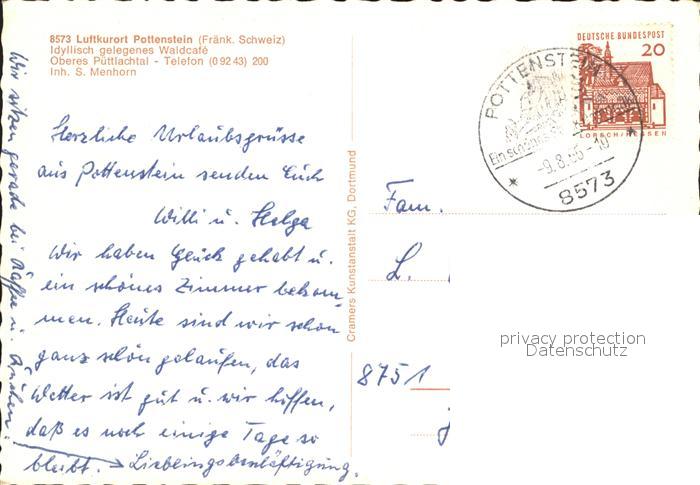 8573 Luftkurort Pottenstein (Fränk. Schweiz)
Idyllisch gelegenes Waldcafé
Oberes Püttlachtal - Telefon (0 92 43) 200
Inh. S. Menhorn
Herzliche Urlaubsgrüsse
aus Pottenstein senden Euch
Willi u. Helga
Wir haben Glück gehabt u.
ein schönes Zimmer bekom-
men. Heute sind wir schon
ganz schön gelaufen, das
Wetter ist gut u. wir hoffen,
daß es noch einige Tage so
bleibt. → Lieblingsbeschäftigung.
Wir sitzen gerade bei Kaffee u. Kuchen.
Cramers Kunstanstalt KG, Dortmund
DEUTSCHE BUNDESPOST
20
LORSCH/HESSEN
POTTENSTEIN
-9.8.66-10
8573
Fam.
L.
8751
privacy protection
Datenschutz